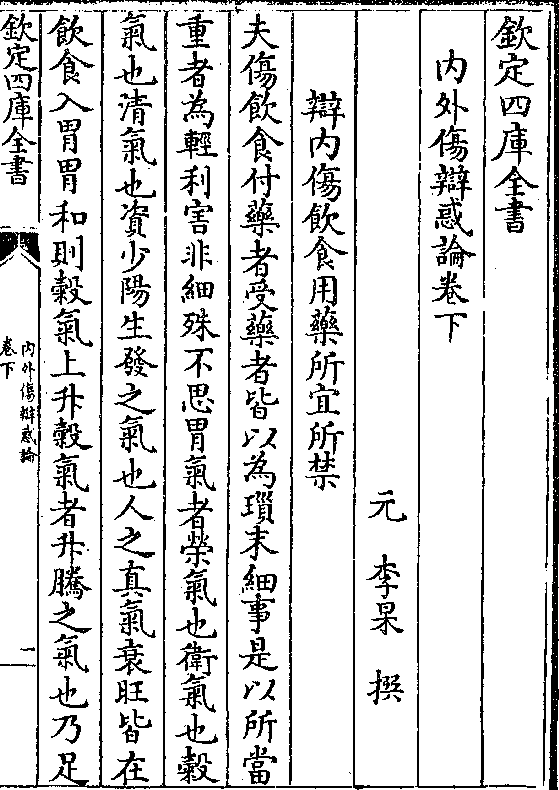 欽定四庫全書
內外傷辯惑論卷下
元 李杲 撰
辯內傷飲食用藥所宜所禁
夫傷飲食付藥者受藥者皆以為瑣末細事是以所當
重者為輕利害非細殊不思胃氣者榮氣也衛氣也穀
氣也清氣也資少陽生發之氣也人之真氣衰旺皆在
飲食入胃胃和則穀氣上升穀氣者升騰之氣也乃足
欽定四庫全書
內外傷辯惑論
卷下
一